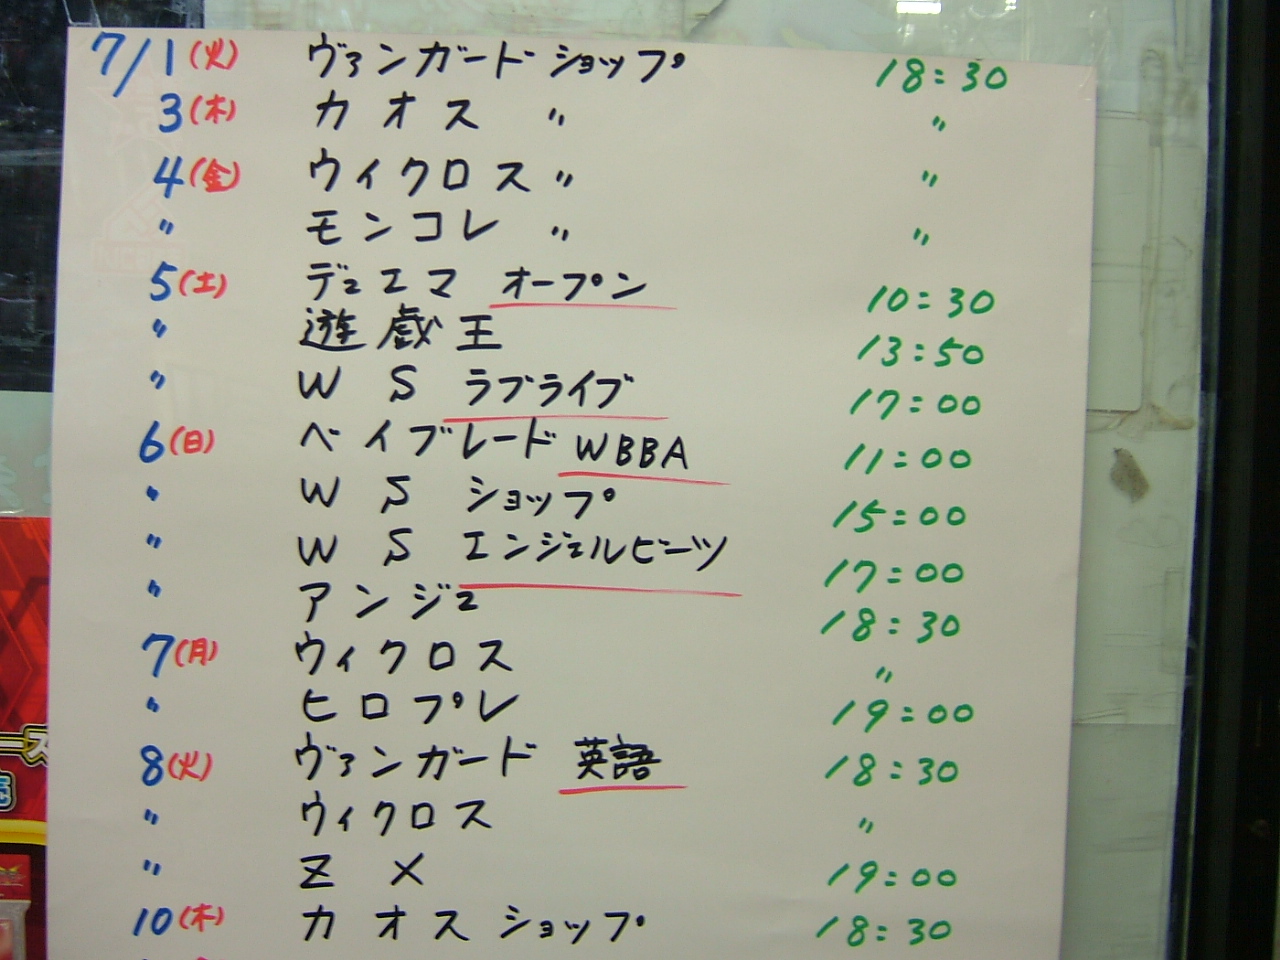 7/1(火) ヴァンガード ショップ 18:30
3(木) カオス 〃 〃
4(金) ウィクロス 〃 〃
〃 モンコレ 〃 〃
5(土) デュエマ オープン 10:30
〃 遊戯王 13:50
〃 WS ラブライブ 17:00
6(日) ベイブレード WBBA 11:00
〃 WS ショップ 15:00
〃 WS エンジェルビーツ 17:00
〃 アンジュ 18:30
7(月) ウィクロス 〃
〃 ヒロプレ 19:00
8(火) ヴァンガード 英語 18:30
〃 ウィクロス 〃
〃 ZX 19:00
10(木) カオス ショップ 18:30